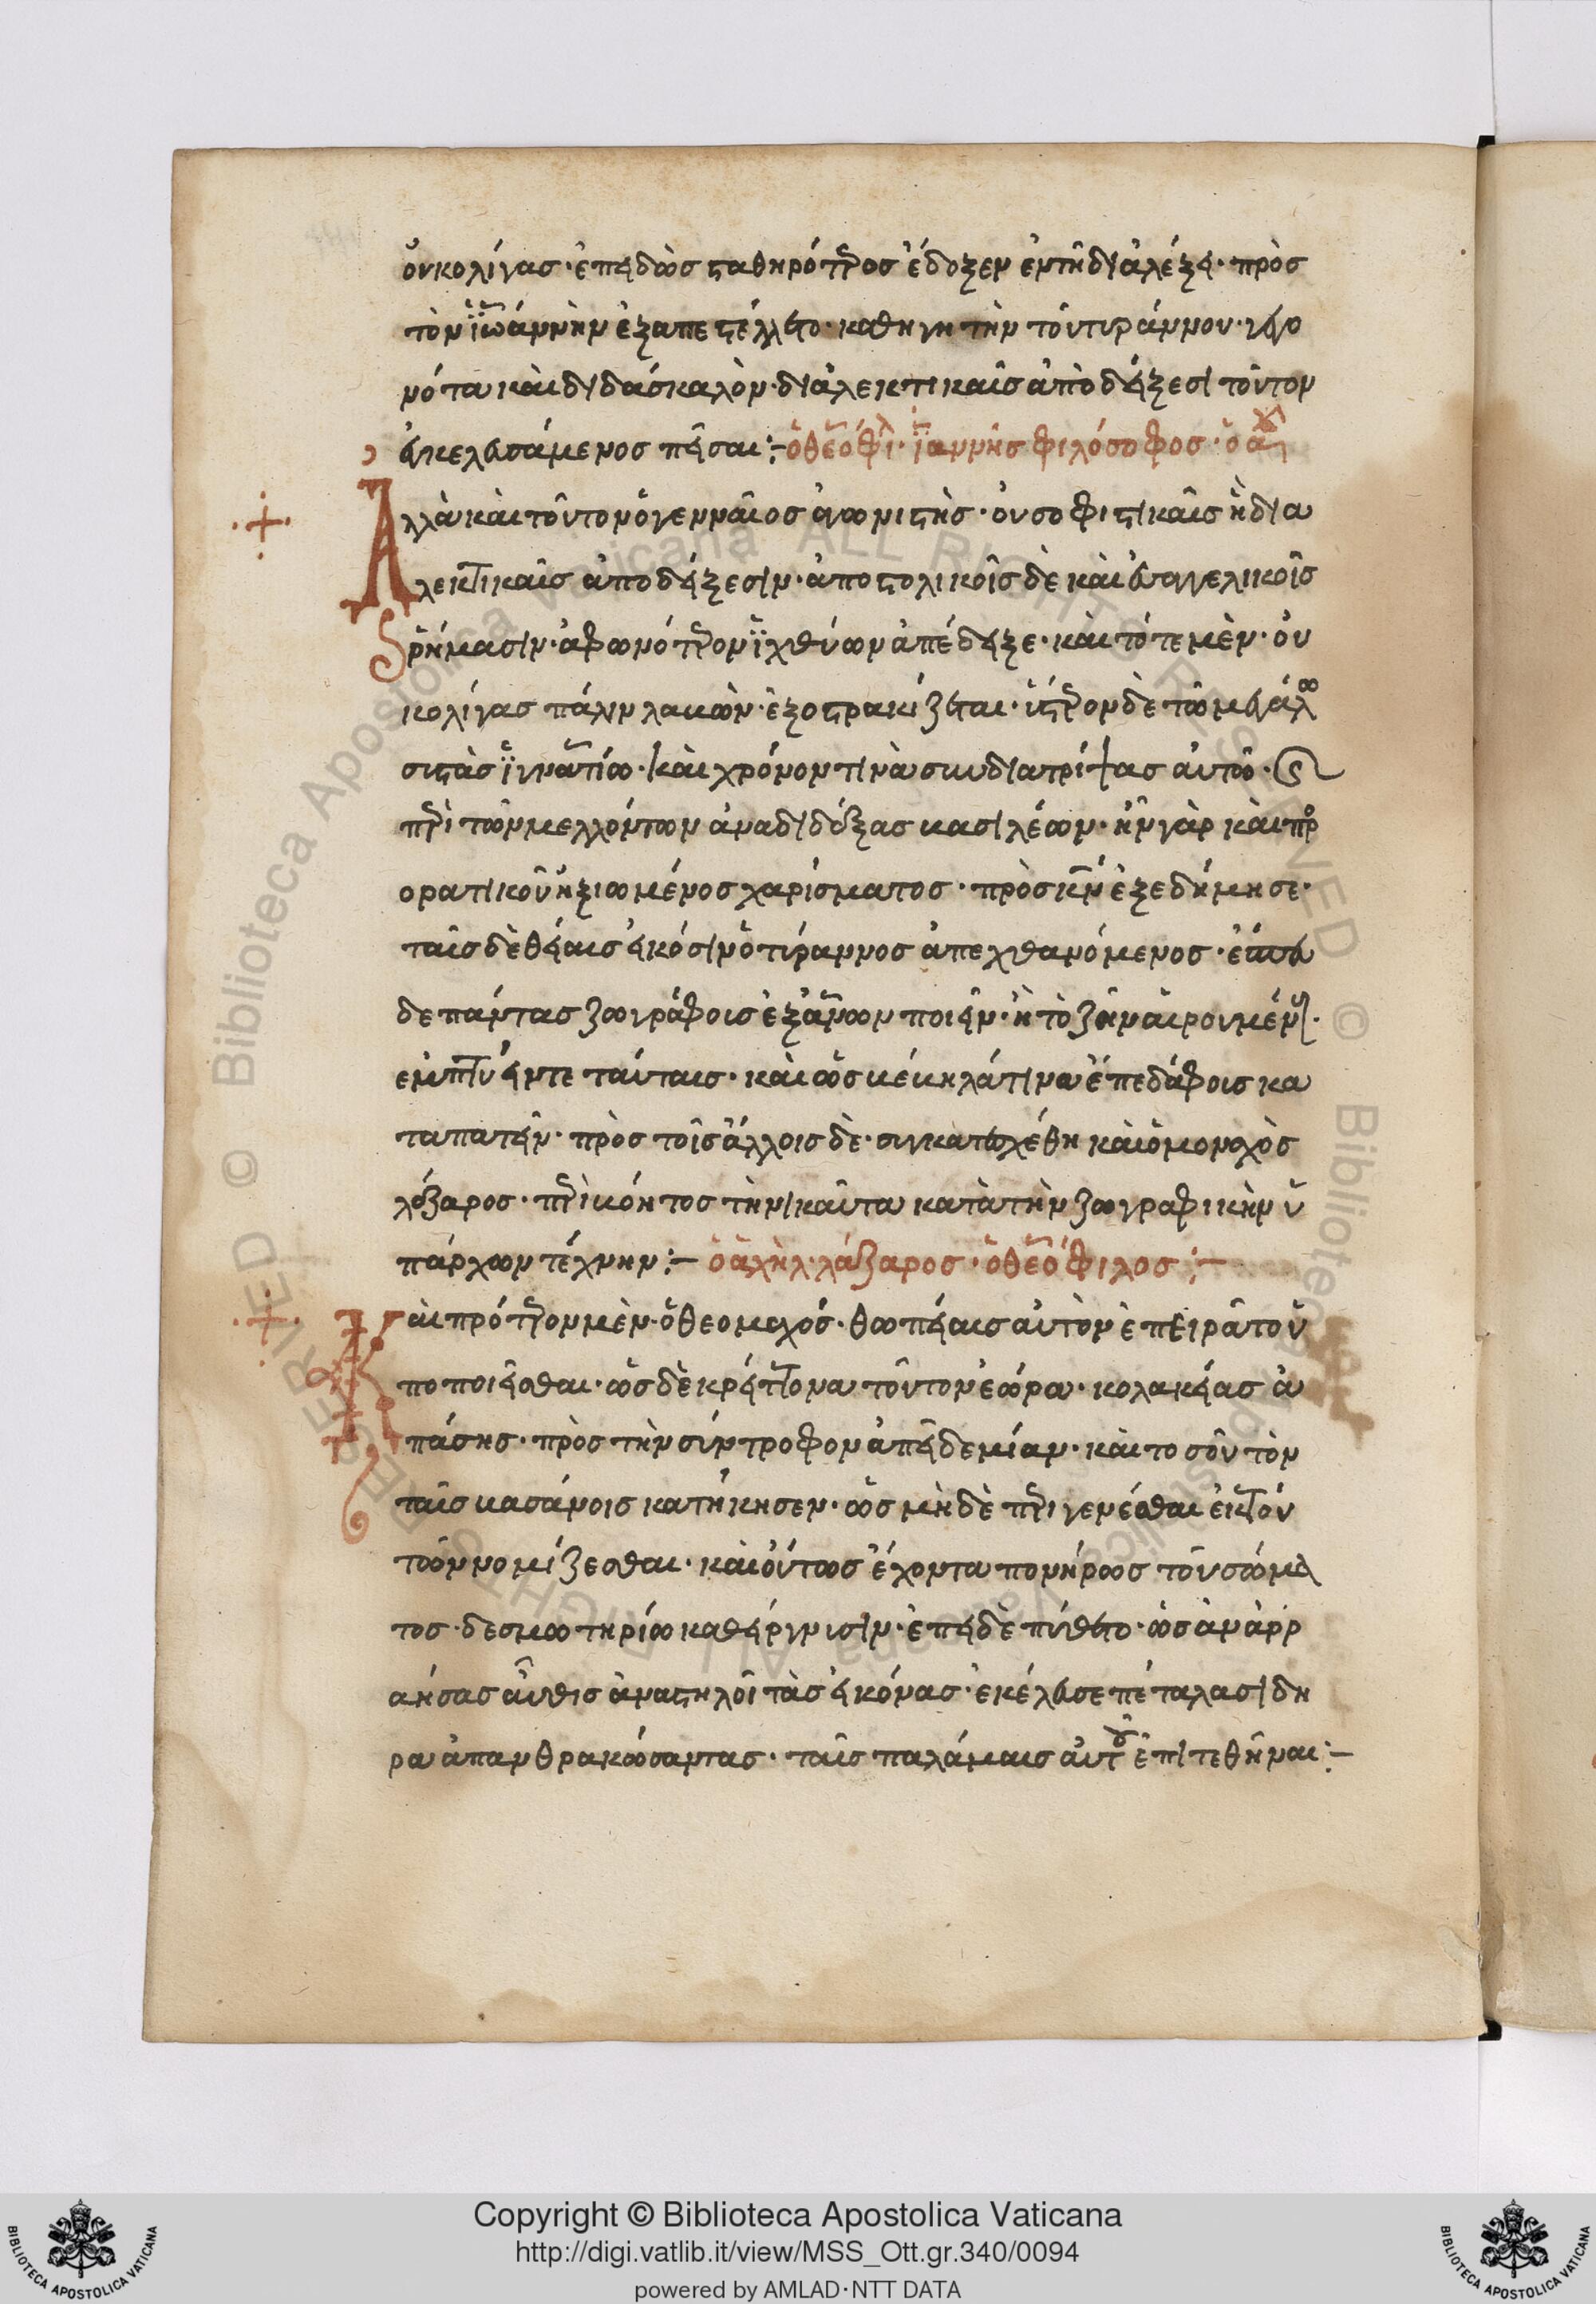 ὀυκολίγας· ἐπειδὼς σταθηρότερος ἔδοξεν ἐν τῆ διαλέξει· πρὸς
τὸν ϊωάννὴν ἐξαπεστέλλετο· καθηγητὴν τὸυτυράννου· γεγο
νότα καὶ διδάσκαλὸν· διαλεκτικαῖς ἀπὸδείξεσι τοῦτον
ἐγκελευσάμενος πεῖσαι:- ὁ θεόφι· ϊαννῆς φιλόσοφος· ὁ
Ἀλλὰ καὶ τοῦτον ὁ γενναῖος ἀγωνιστὴς· ὀυ σοφιστικαῖς ἢ δια
λεκτικαῖς ἀποδείξεσιν· ἀποστολικοῖς δὲ καὶ ἐυαγγελικοῖς
ῥήμασιν· ἀφωνότερον ϊχθύων ἀπέδειξε· καὶ τότε μὲν· ὀυ
κολίγας πάλιν λαβὼν· ἐξοστρακίζεται· ὕστερον δὲ τῶ μεγάλω
συστὰς ϊγνατίω· καὶ χρόνον τινὰ συνδιατρίψας ἀυτῶ· ϛ
περὶ τῶν μελλόντων ἀναδιδάξας βασιλέων· ἦν γὰρ καὶ προ
ορατικοῦ ἠξιωμένος χαρίσματος· πρὸς κν ἐξεδήμησε·
ταῖς δὲ θείαις εἰκόσιν ὁ τύραννος ἀπεχθανόμενος·
δε πάντας ζωγράφοις ἐξ ἀνων ποιεῖν· ἢ τὸ ζῆν ἁιρουμέν
εμπτύειν τε ταύταις· καὶ ὡς βέβηλά τινα ἐπ εδάφοις κα
ταπατεῖν· πρὸς τοῖς ἄλλοις δὲ· συγκατεσχέθη καὶ ὁ μοναχὸς
λάζαρος· περιβόητος τηνικαῦτα κατὰ τὴν ζωγραφικὴν ὑ
πάρχων τέχνην:- ὁ ἀχὴλ· λάζαρος· ὁ θεόφιλος:-
Καὶ πρότερον μὲν· ὁ θεομαχός· θωπείαις ἀυτὸν ἐπειρᾶτο ὑ
ποποιεῖσθαι· ὡς δὲ κρείττονα τοῦτον εώρα· κολακείας ἁ
πάσης· πρὸς τὴν σύντροφον ἀπεῖδε μανίαν· καὶ τοσοῦτον
ταῖς βασάνοις κατήκησεν· ὡς μὴδὲ περιγενέσθαι ἐκ τού
τῶν νομίζεσθαι· καὶ ὀύτως ἔχοντα πονήρως τοῦ σώμα
τος· δεσμωτηρίω καθείργνυσιν· ἐπεὶ δὲ πύθετο· ὡς ἀνὰρρ
αήσας ἆυθις ἀναστηλοῖ τὰς εἰκόνας· ἐκέλευσε πέταλα σιδη
ρα ἀπανθρακώσαντας· ταῖς παλάμαις ἀυτοῦ ἐπιτεθῆναι:-
Copyright © Biblioteca Apostolica Vaticana
http://digi.vatlib.it/view/MSS_Ott.gr.340/0094
powered by AMLAD·NTT DATA